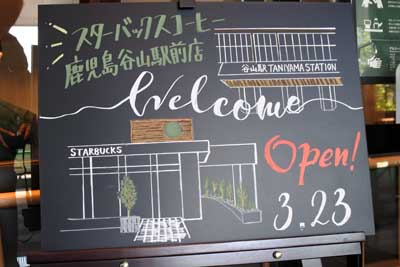 スターバックスコーヒー
鹿児島谷山駅前店
谷山駅 TANIYAMA STATION
Welcome
STARBUCKS
Open!
3.23